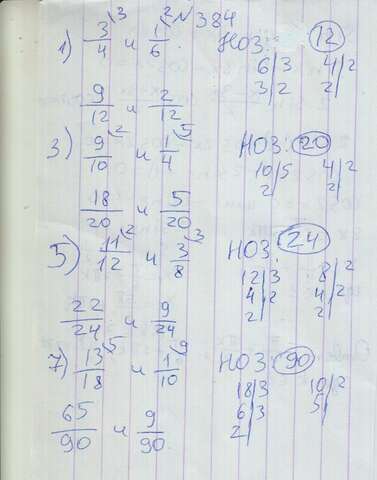 №384
1) 3/4 \3 и 1/6 \2 НОЗ: 12
6|3 4|2
3|2 2|
9/12 и 2/12
3) 9/10 \2 и 1/4 \5 НОЗ: 20
10|5 4|2
2| 2|
18/20 и 5/20
5) 11/12 \2 и 3/8 \3 НОЗ: 24
12|3 8|2
4|2 4|2
2| 2|
22/24 и 9/24
7) 13/18 \5 и 1/10 \9 НОЗ: 90
18|3 10|2
6|3 5|
2|
65/90 и 9/90